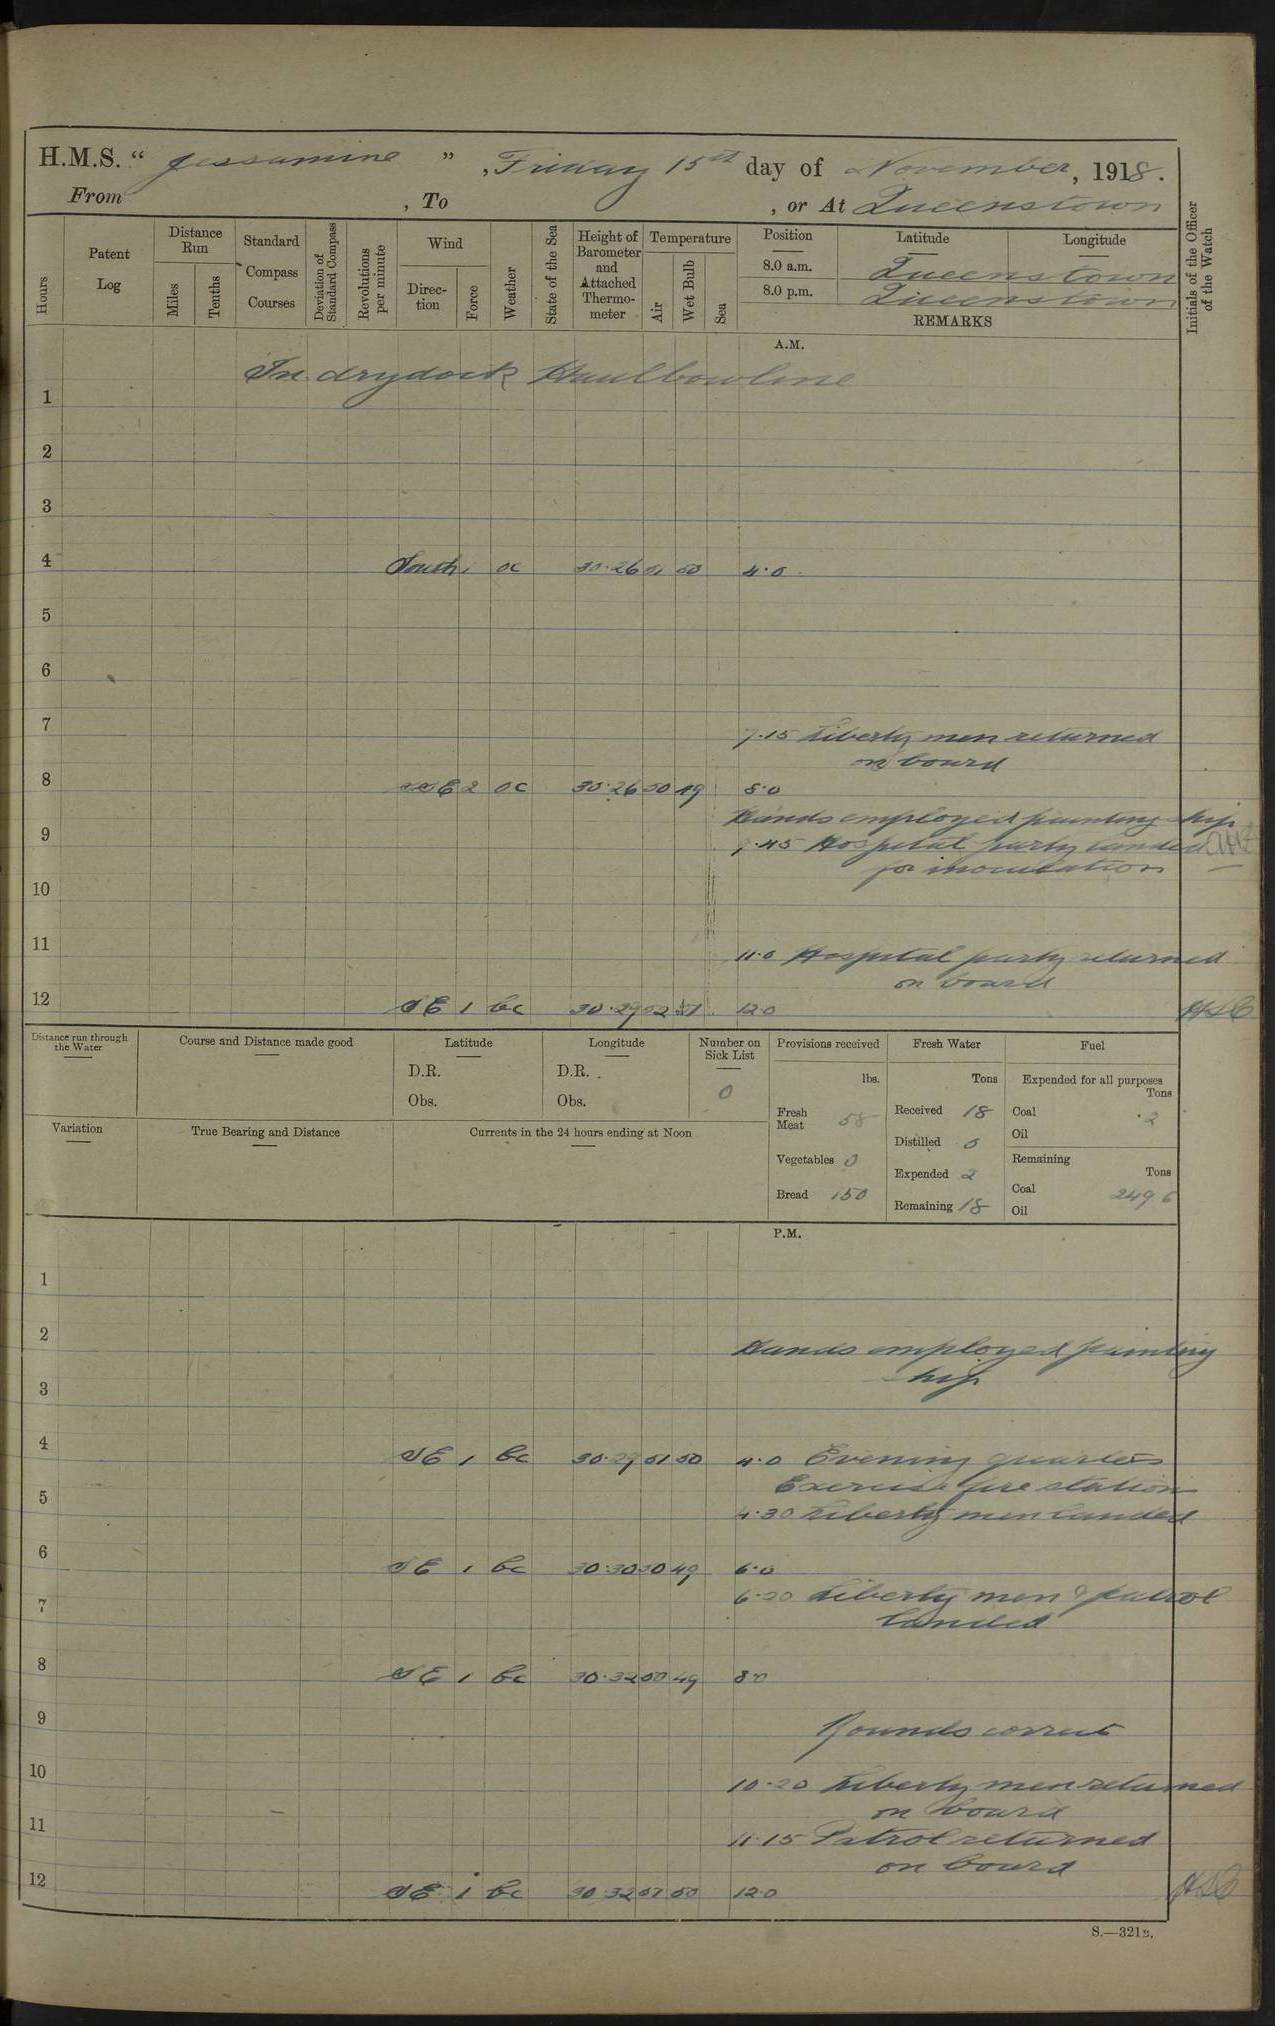 H.M.S. “ Jessamine ” , Friday 15th day of November, 1918.
From , To , or At Queenstown
Hours
Patent Log
Distance Run
Miles
Tenths
Standard Compass Courses
Deviation of Standard Compass
Revolutions per minute
Wind
Direction
Force
Weather
State of the Sea
Height of Barometer and Attached Thermometer
Temperature
Air
Wet Bulb
Sea
Position
8.0 a.m.
8.0 p.m.
Latitude
Longitude
Queenstown
Queenstown
REMARKS
Initials of the Officer of the Watch
A.M.
In drydock Haulbowline
1
2
3
4 South 1 oc 30.26 51 50 4.0
5
6
7
7.15 Liberty men returned
on board
8 E 2 oc 30.26 50 49 8.0
Hands employed painting ship
9
9.45 Hospital party landed
for inoculation
10
11
11.0 Hospital party returned
on board
12 SE 1 bc 30.29 52 51 12.0
Distance run through the Water
Course and Distance made good
Latitude
D.R.
Obs.
Longitude
D.R.
Obs.
Number on Sick List
0
Provisions received
lbs.
Fresh Meat 58
Vegetables 0
Bread 150
Fresh Water
Tons
Received 18
Distilled 0
Expended 2
Remaining 18
Fuel
Expended for all purposes
Tons
Coal .2
Oil
Remaining
Tons
Coal 249 6
Oil
Variation
True Bearing and Distance
Currents in the 24 hours ending at Noon
P.M.
1
2
Hands employed painting
ship
3
4 SE 1 bc 30.29 51 50 4.0 Evening quarters
Exercise fire station
5
4.30 Liberty men landed
6 SE 1 bc 30.30 50 49 6.0
6.20 Liberty men & patrol
7
landed
8 SE 1 bc 30.32 50 49 8.0
9
Rounds correct
10
10.20 Liberty men returned
on board
11
11.15 Patrol returned
on board
12 SE 1 bc 30 32 51 50 12.0
S.—321B.